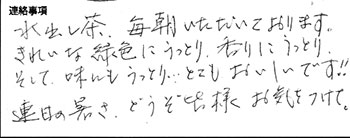 連絡事項
水出し茶、毎朝いただいております。
きれいな緑色にうっとり、香りにうっとり、
そして、味にもうっとり…とてもおいしいです!!
連日の暑さ、どうぞ皆様 お気をつけて。